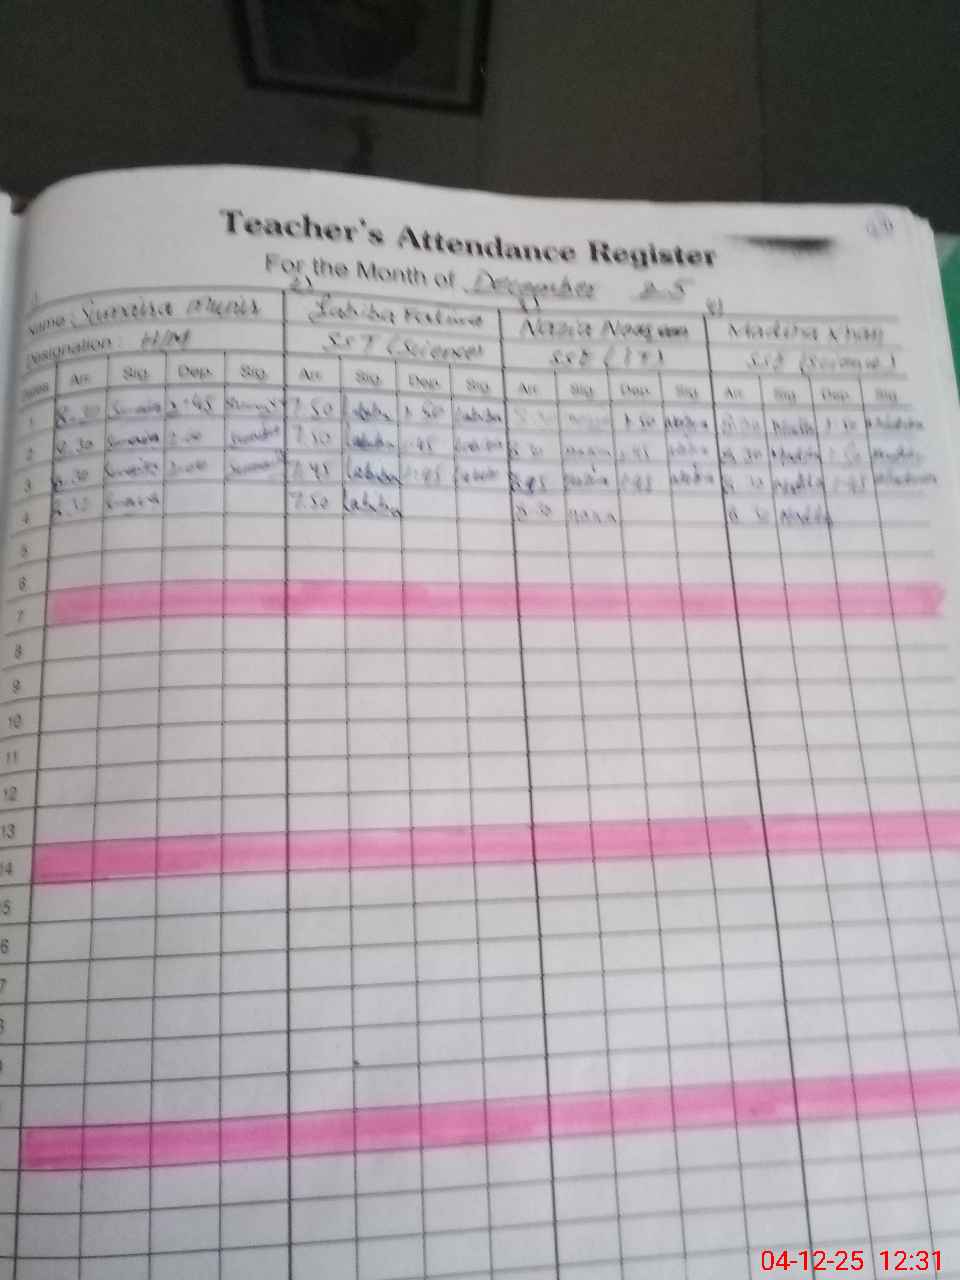 Teacher's Attendance Register
For the Month of December 25
1) 2) 3) 4)
Name: Sumaira Munir Labiba Nazia Madiha Khan
Designation: H/M SST (Science) SST (IT) SST (Science)
Dates Arr. Sig. Dep. Sig. Arr. Sig. Dep. Sig. Arr. Sig. Dep. Sig. Arr. Sig. Dep. Sig.
1 8.30 Sumaira 1.45 7.50 Labiba 1.50 Labiba 8.30 1.50 Nazia 8.30 Madiha 1.50 Madiha
2 8.30 Sumaira 2.00 Sumaira 7.50 Labiba 1.45 Labiba 8.30 Nazia 1.45 Nazia 8.30 Madiha 1.50 Madiha
3 8.30 Sumaira 2.00 Sumaira 7.45 Labiba 1.45 Labiba 8.45 Nazia 1.45 Nazia 8.30 Madiha 1.45
4 8.30 Sumaira 7.50 Labiba 8.30 Nazia 8.30 Madiha
5
6
7
8
9
10
11
12
13
14
5
6
7
8
04-12-25 12:31